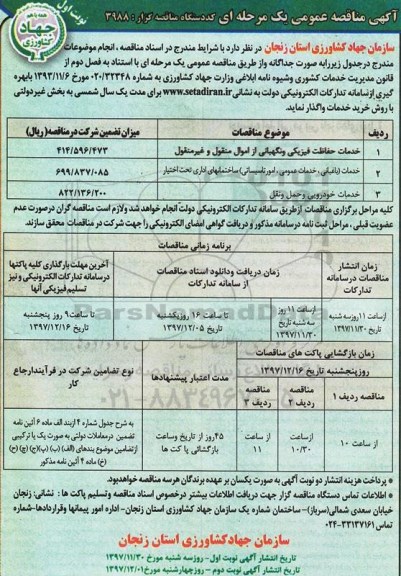 نوبت اول
همه با هم
جهاد
کشاورزی
آگهی مناقصه عمومی یک مرحله ای کددستگاه مناقصه گزار : ۳۹۸۸
سازمان جهاد کشاورزی استان زنجان در نظر دارد با شرایط مندرج در اسناد مناقصه ، انجام موضوعات
مندرج درجدول زیررابه صورت جداگانه واز طریق مناقصه عمومی یک مرحله ای با استناد به فصل دوم از
قانون مدیریت خدمات کشوری وشیوه نامه ابلاغی وزارت جهاد کشاورزی به شماره ۰۲۰/۳۲۳۴۸ مورخ ۱۳۹۳/۱۱/۶ بابهره
گیری ازسامانه تدارکات الکترونیکی دولت به نشانی www.setadiran.ir برای مدت یک سال شمسی به بخش غیردولتی
با روش خرید خدمات واگذار نماید.
ردیف موضوع مناقصات میزان تضمین شرکت درمناقصه(ریال)
۱ خدمات حفاظت فیزیکی ونگهبانی از اموال منقول و غیرمنقول ۴۱۴/۵۹۶/۴۷۳
۲ خدمات (باغبانی ، خدمات عمومی ، امور تاسیساتی) ساختمانهای اداری تحت اختیار ۶۹۹/۸۳۷/۰۸۵
۳ خدمات خودرویی وحمل ونقل ۸۲۲/۱۳۶/۲۰۰
کلیه مراحل برگزاری مناقصات ازطریق سامانه تدارکات الکترونیکی دولت انجام خواهد شد ولازم است مناقصه گران درصورت عدم
عضویت قبلی ، مراحل ثبت نامه درسامانه مذکور و دریافت گواهی امضای الکترونیکی را جهت شرکت در مناقصات محقق سازند.
برنامه زمانی مناقصات
زمان انتشار مناقصات درسامانه تدارکات
زمان دریافت ودانلود اسناد مناقصات از سامانه تدارکات
آخرین مهلت بارگذاری کلیه پاکتها درسامانه تدارکات الکترونیکی و نیز تسلیم فیزیکی آنها
ازساعت ۱۱ روزسه شنبه تاریخ ۱۳۹۷/۱۱/۳۰
ازساعت ۱۱ روز سه شنبه تاریخ ۱۳۹۷/۱۱/۳۰
تا ساعت ۱۶ روزیکشنبه تاریخ ۱۳۹۷/۱۲/۰۵
تا ساعت ۹ روز پنجشنبه تاریخ ۱۳۹۷/۱۲/۱۶
زمان بازگشایی پاکت های مناقصات
روزپنجشنبه تاریخ ۱۳۹۷/۱۲/۱۶
مدت اعتبار پیشنهادها
نوع تضامین شرکت در فرآیندارجاع کار
مناقصه ردیف ۱
مناقصه ردیف ۲
مناقصه ردیف ۳
از ساعت ۱۰
ازساعت ۱۰/۳۰
از ساعت ۱۱
۴۵روز از تاریخ وساعت بازگشائی پاکت ها
به شرح جدول شماره ۴ ازبند الف ماده ۶ آئین نامه
تضمین درمعاملات دولتی به صورت یک یا ترکیبی
ازتضامین موضوع بندهای (الف) (ب) (پ)(ج) (چ) (ح)
(خ) ماده ۴ آئین نامه مذکور
* پرداخت هزینه انتشار دو نوبت آگهی به صورت یکسان بر عهده برندگان هرسه مناقصه خواهدبود.
* اطلاعات تماس دستگاه مناقصه گزار جهت دریافت اطلاعات بیشتر درخصوص اسناد مناقصه وتسلیم پاکت ها : نشانی: زنجان
خیابان سعدی شمالی(سرباز)- ساختمان شماره یک سازمان جهاد کشاورزی استان زنجان- اداره امور پیمانها وقراردادها-شماره
تماس ۳۳۱۳۷۱۶۱-۰۲۴
سازمان جهادکشاورزی استان زنجان
تاریخ انتشار آگهی نوبت اول- روزسه شنبه مورخ ۱۳۹۷/۱۱/۳۰
تاریخ انتشار آگهی نوبت دوم – روزچهارشنبه مورخ۱۳۹۷/۱۲/۰۱